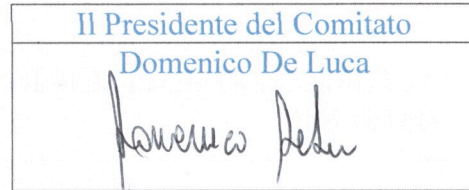 Il Presidente del Comitato
Domenico De Luca
Domenico De Luca